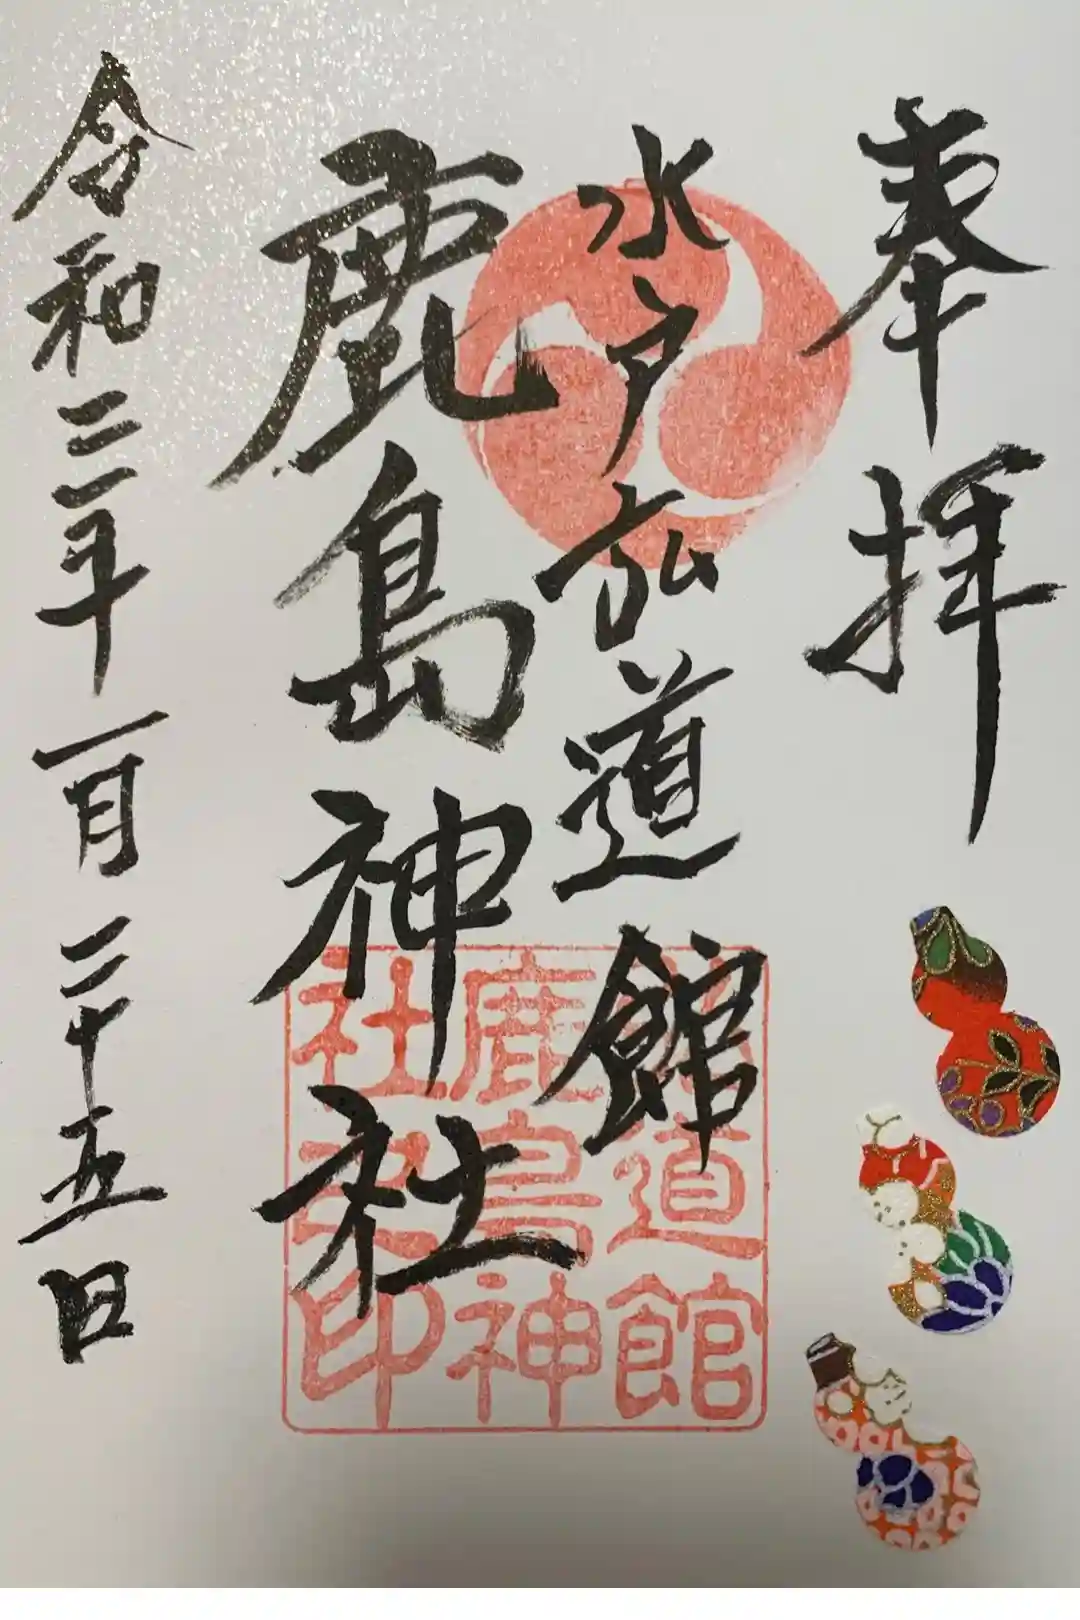 奉拝
水戸弘道館
鹿島神社
令和三年一月二十五日
道館
鹿島神
社之印